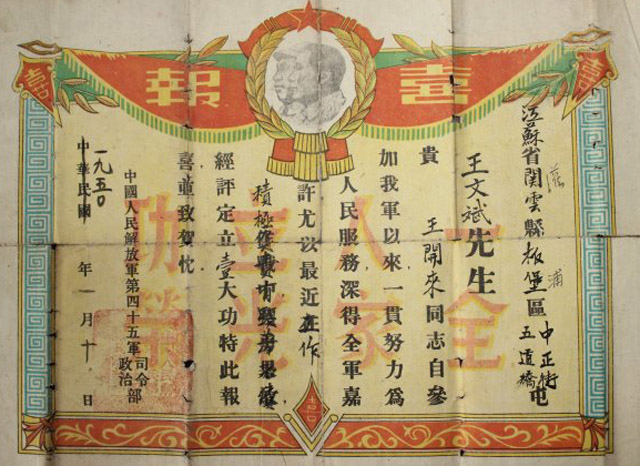 喜報
江蘇省関雲縣板堡區中正街五道橋屯
灌
浦
王文斌先生
貴 王開來同志自參
加我軍以來一貫努力爲
人民服務深得全軍嘉
許尤以最近在作
積極
經評定立壹大功特此報
喜並致賀忱
中國人民解放軍第四十五軍司令部政治部
中華民國一九五〇年一月十日
一人立功
全家光榮
喜
喜